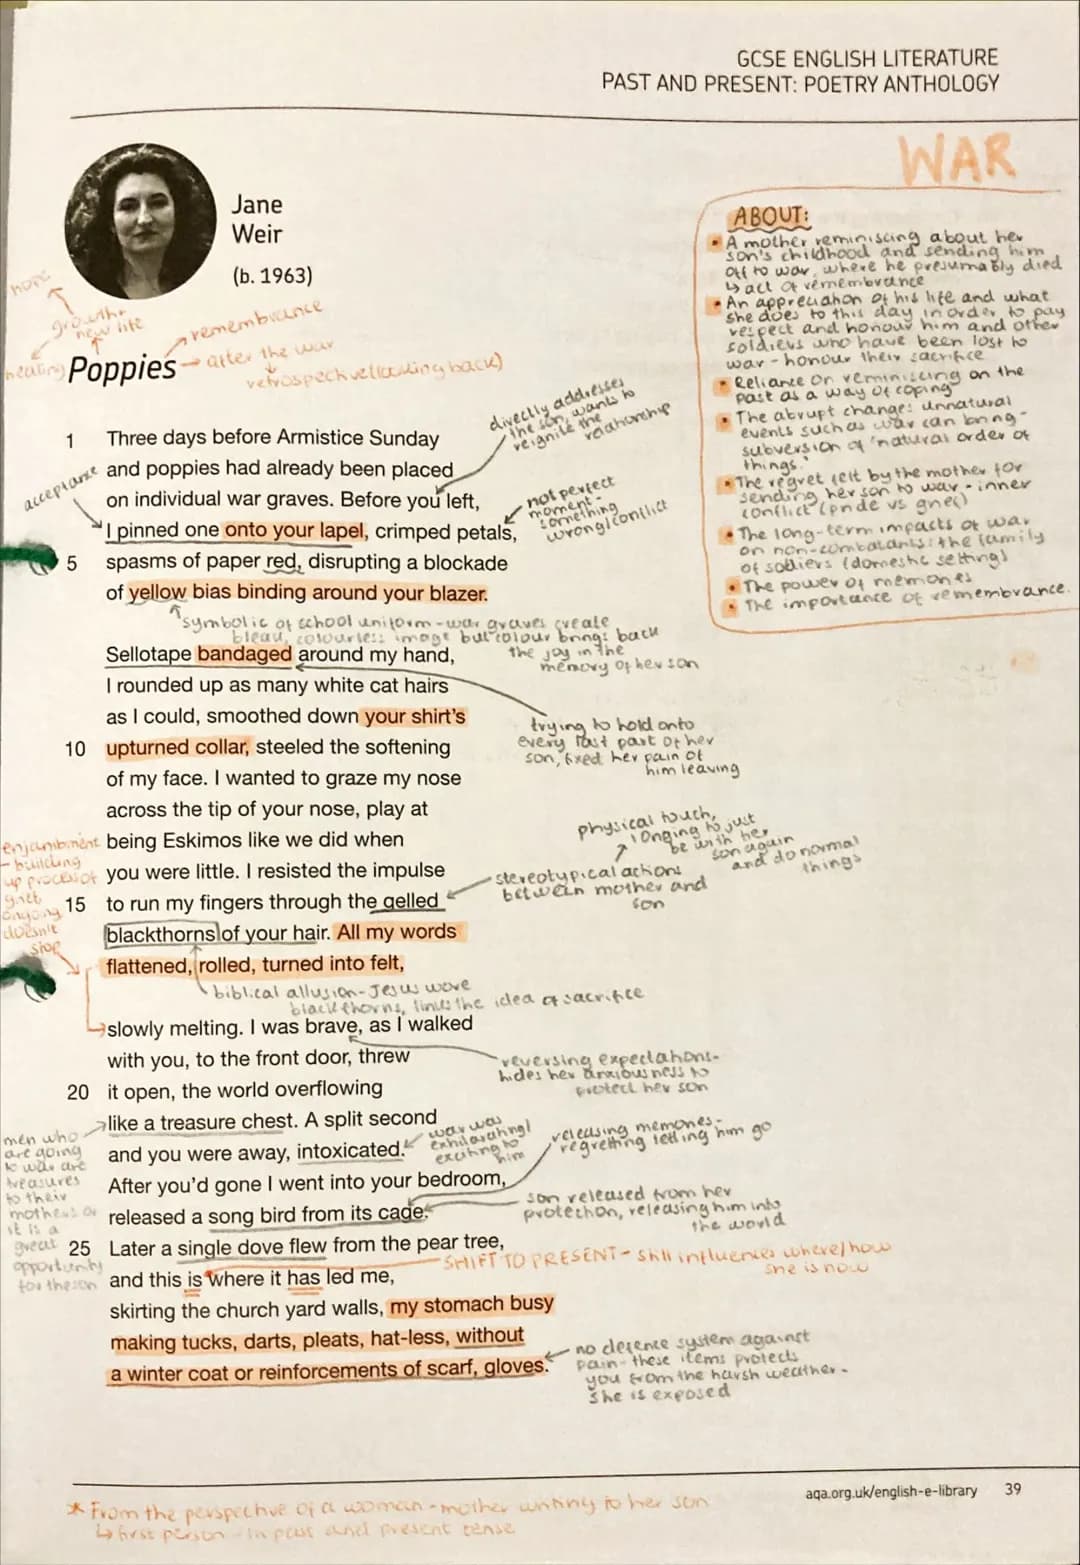 GCSE ENGLISH LITERATURE
PAST AND PRESENT: POETRY ANTHOLOGY
WAR
Jane
Weir
(b. 1963)
ABOUT:
• A mother reminiscing about her
son's childhood and sending him
off to war, where he presumably died
↳ act of remembrance
• An appreciation of his life and what
she does to this day in order to pay
respect and honour him and other
soldiers who have been lost to
war - honour their sacrifice
• Reliance on reminiscing on the
past as a way of coping
• The abrupt change: unnatural
events such as war can bring -
subversion of 'natural order of
things.'
• The regret felt by the mother for
sending her son to war - inner
conflict (pride vs grief)
• The long-term impacts of war
on non-combatants: the family
of soldiers (domestic setting)
• The power of memories
• The importance of remembrance.
hope
growth +
new life
healing
Poppies
→ remembrance
→ after the war
retrospective (looking back)
directly addresses
the son, wants to
reignite the
relationship
1 Three days before Armistice Sunday
and poppies had already been placed
acceptance
on individual war graves. Before you left,
I pinned one onto your lapel, crimped petals,
not perfect
moment -
something
wrong/conflict
5 spasms of paper red, disrupting a blockade
of yellow bias binding around your blazer.
symbolic of school uniform - war graves create
bleak, colourless image but colour brings back
the joy in the
memory of her son
Sellotape bandaged around my hand,
I rounded up as many white cat hairs
as I could, smoothed down your shirt's
10 upturned collar, steeled the softening
of my face. I wanted to graze my nose
trying to hold onto
every last part of her
son, fixed her pain of
him leaving
across the tip of your nose, play at
being Eskimos like we did when
you were little. I resisted the impulse
15 to run my fingers through the gelled
blackthorns of your hair. All my words
flattened, rolled, turned into felt,
physical touch,
longing to just
be with her
son again
and do normal
things
stereotypical actions
between mother and
son
enjambment
- building
up process of
grief
ongoing
doesn't
stop
biblical allusion - Jesus wore
blackthorns, links the idea of sacrifice
slowly melting. I was brave, as I walked
with you, to the front door, threw
20 it open, the world overflowing
like a treasure chest. A split second
and you were away, intoxicated.
After you'd gone I went into your bedroom,
released a song bird from its cage.
25 Later a single dove flew from the pear tree,
and this is where it has led me,
skirting the church yard walls, my stomach busy
making tucks, darts, pleats, hat-less, without
a winter coat or reinforcements of scarf, gloves.
reversing expectations -
hides her anxiousness to
protect her son
war was
exhilarating/
exciting to
him
releasing memories -
regretting letting him go
son released from her
protection, releasing him into
the world
men who
are going
to war are
treasures
to their
mothers or
it is a
great
opportunity
for the son
SHIFT TO PRESENT - still influences where/how
she is now
no defence system against
pain - these items protects
you from the harsh weather -
she is exposed
aqa.org.uk/english-e-library 39
* From the perspective of a woman - mother writing to her son
↳ first person - in past and present tense